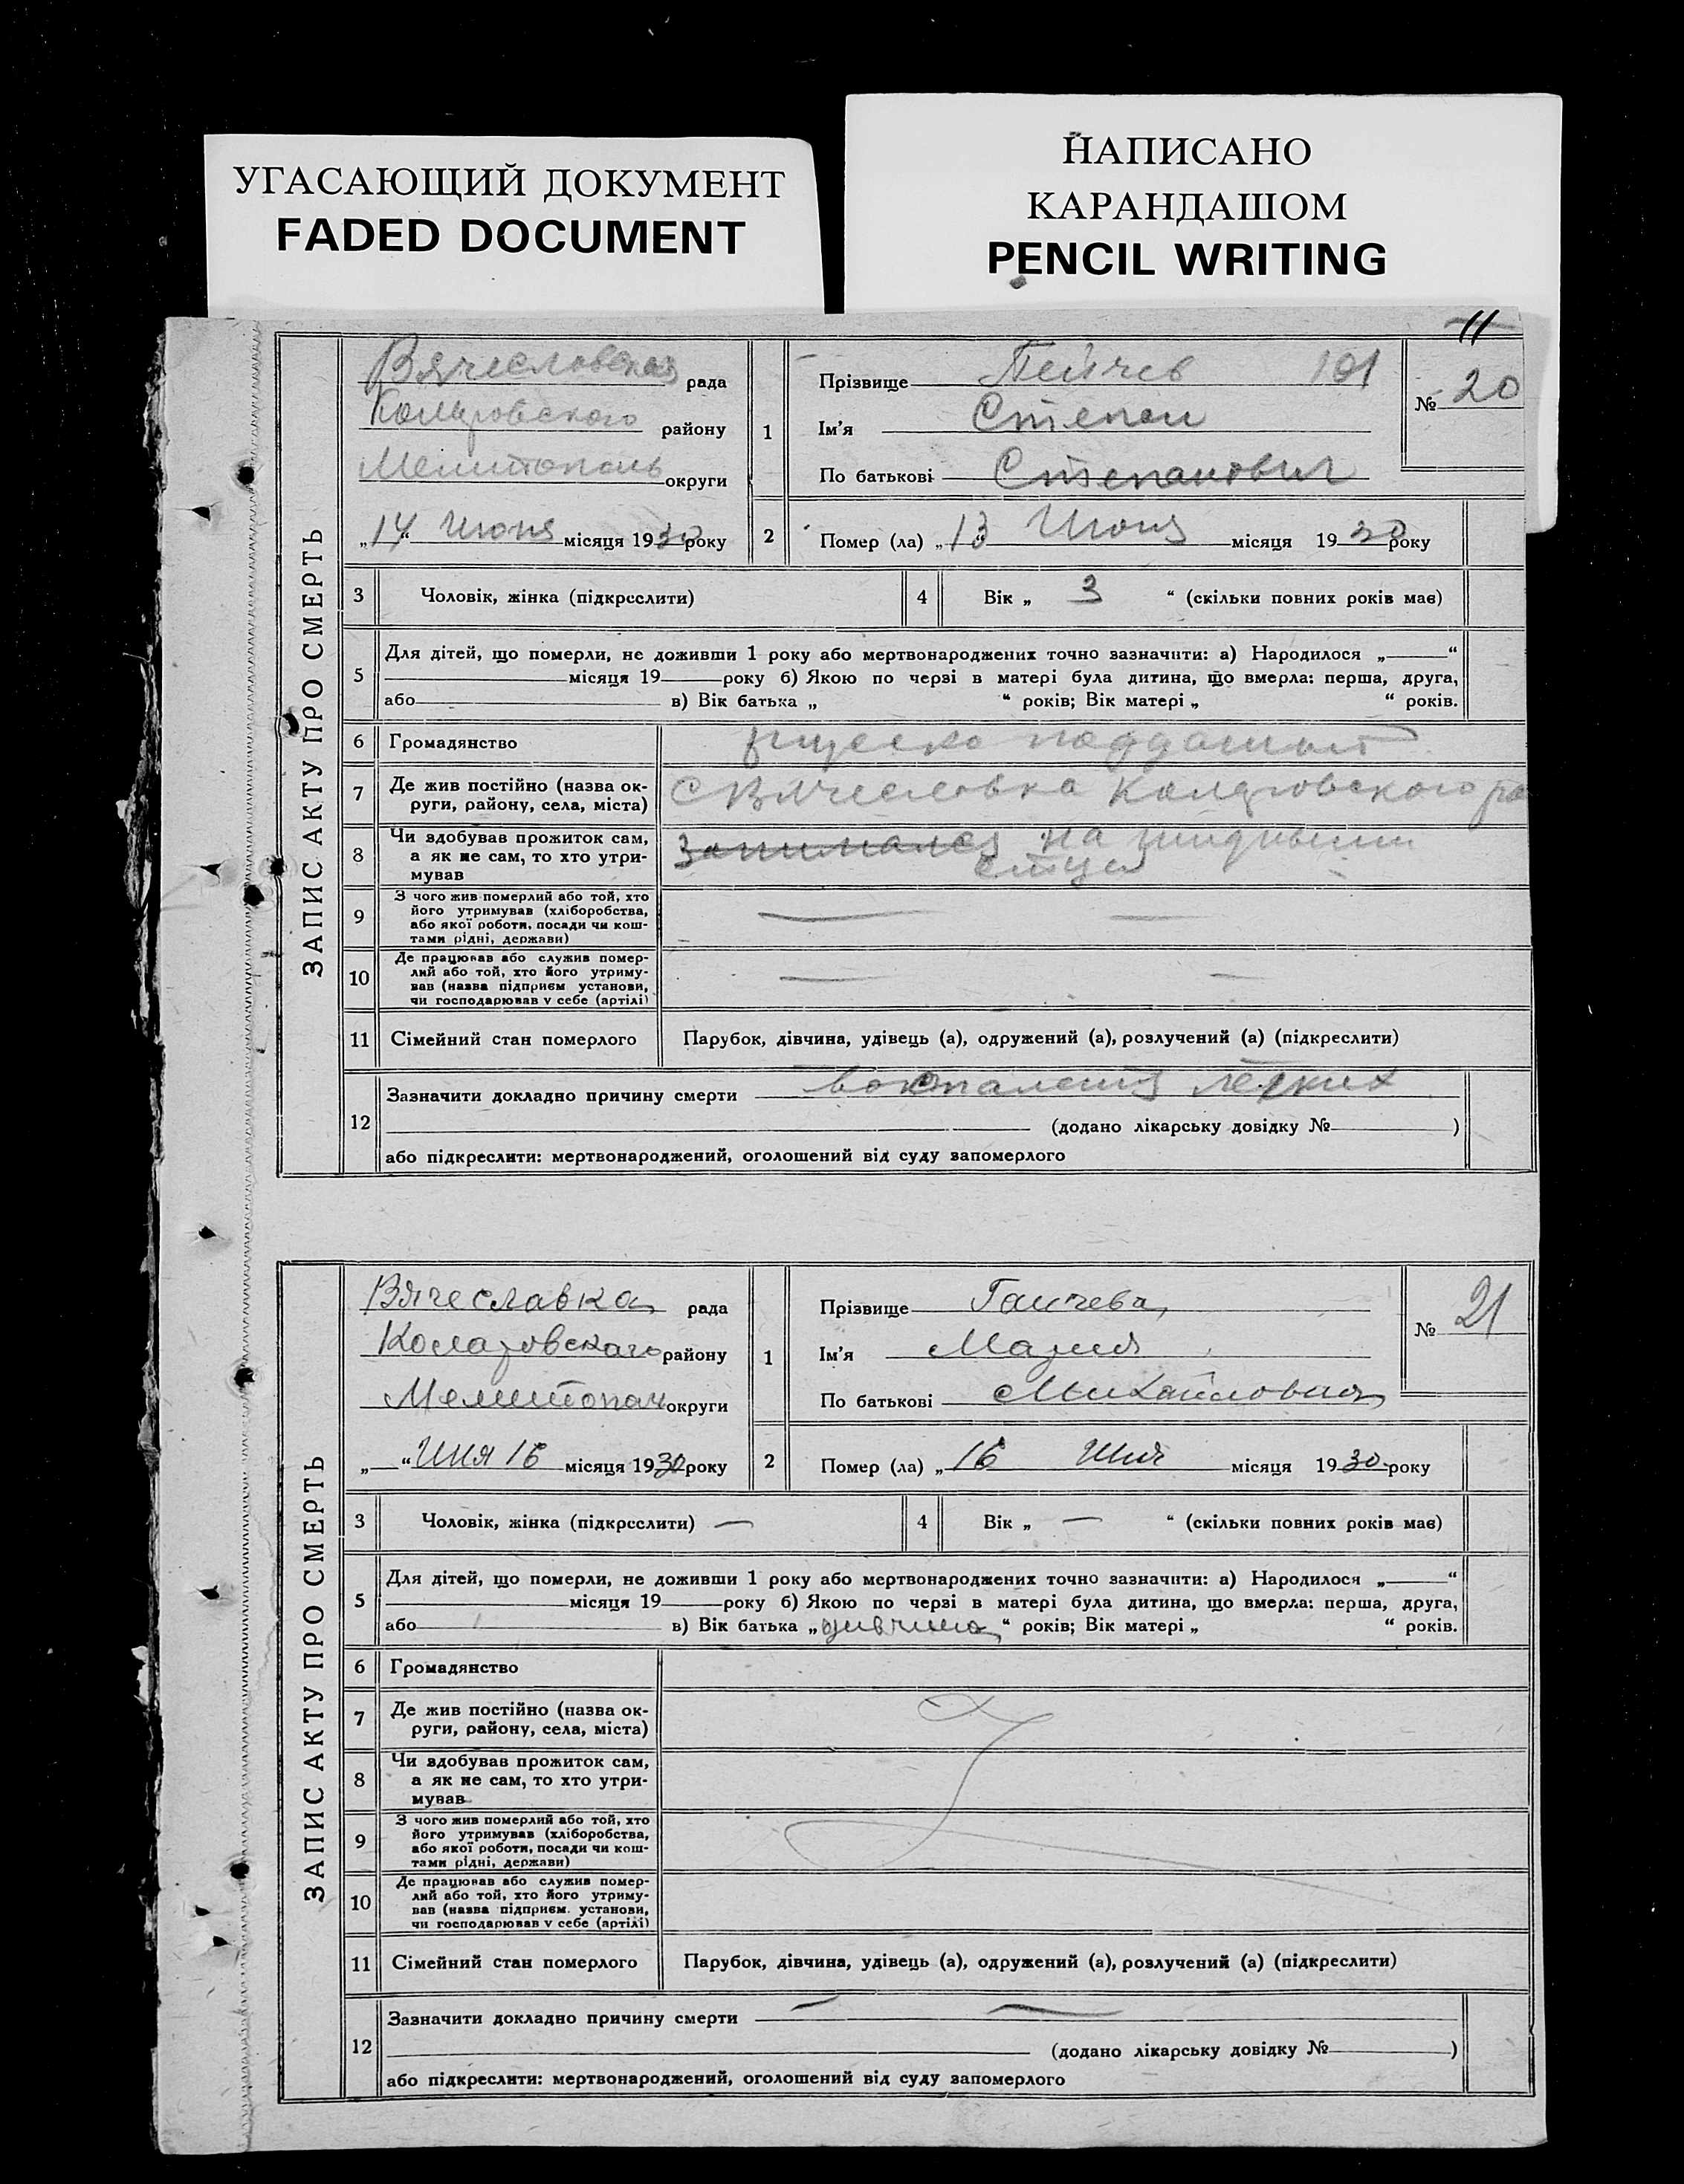 УГАСАЮЩИЙ ДОКУМЕНТ
FADED DOCUMENT
НАПИСАНО
КАРАНДАШОМ
PENCIL WRITING
11
ЗАПИС АКТУ ПРО СМЕРТЬ
Вячесловская рада
Коларовского району
Мелитополь округи
„14“ Июня місяця 1930 року
1
Прізвище Пейчев 191
Ім'я Степан
По батькові Степанович
№ 20
2
Помер (ла) „13 Июня місяця 1930 року
3 Чоловік, жінка (підкреслити)
4 Вік „ 3 “ (скільки повних років має)
5 Для дітей, що померли, не доживши 1 року або мертвонароджених точно зазначити: а) Народилося „ “
місяця 19 року б) Якою по черзі в матері була дитина, що вмерла: перша, друга,
або в) Вік батька „ “ років; Вік матері „ “ років.
6 Громадянство
7 Де жив постійно (назва ок-
руги, району, села, міста) С Вячесловка Коларовского ра
8 Чи здобував прожиток сам,
а як не сам, то хто утри-
мував
Занимался на
отца
9 З чого жив померлий або той, хто
його утримував (хліборобства,
або якої роботи, посади чи кош-
тами рідні, держави) — —
10 Де працював або служив помер-
лий або той, хто його утриму-
вав (назва підприєм установи,
чи господарював у себе (артілі) — —
11 Сімейний стан померлого Парубок, дівчина, удівець (а), одружений (а), розлучений (а) (підкреслити)
12 Зазначити докладно причину смерти воспаления легких
(додано лікарську довідку № )
або підкреслити: мертвонароджений, оголошений від суду запомерлого
ЗАПИС АКТУ ПРО СМЕРТЬ
Вячеславка рада
Коларовского району
Мелитопол округи
„ “ Июя 16 місяця 1930 року
1
Прізвище Ганчева
Ім'я Мария
По батькові Михайловна
№ 21
2
Помер (ла) „16 Июя місяця 1930 року
3 Чоловік, жінка (підкреслити) —
4 Вік „ — “ (скільки повних років має)
5 Для дітей, що померли, не доживши 1 року або мертвонароджених точно зазначити: а) Народилося „ “
місяця 19 року б) Якою по черзі в матері була дитина, що вмерла: перша, друга,
або в) Вік батька „дивчина“ років; Вік матері „ “ років.
6 Громадянство
7 Де жив постійно (назва ок-
руги, району, села, міста)
8 Чи здобував прожиток сам,
а як не сам, то хто утри-
мував
9 З чого жив померлий або той, хто
його утримував (хліборобства,
або якої роботи, посади чи кош-
тами рідні, держави)
10 Де працював або служив помер-
лий або той, хто його утриму-
вав (назва підприєм. установи,
чи господарював у себе (артілі)
11 Сімейний стан померлого Парубок, дівчина, удівець (а), одружений (а), розлучений (а) (підкреслити)
12 Зазначити докладно причину смерти — —
(додано лікарську довідку № )
або підкреслити: мертвонароджений, оголошений від суду запомерлого